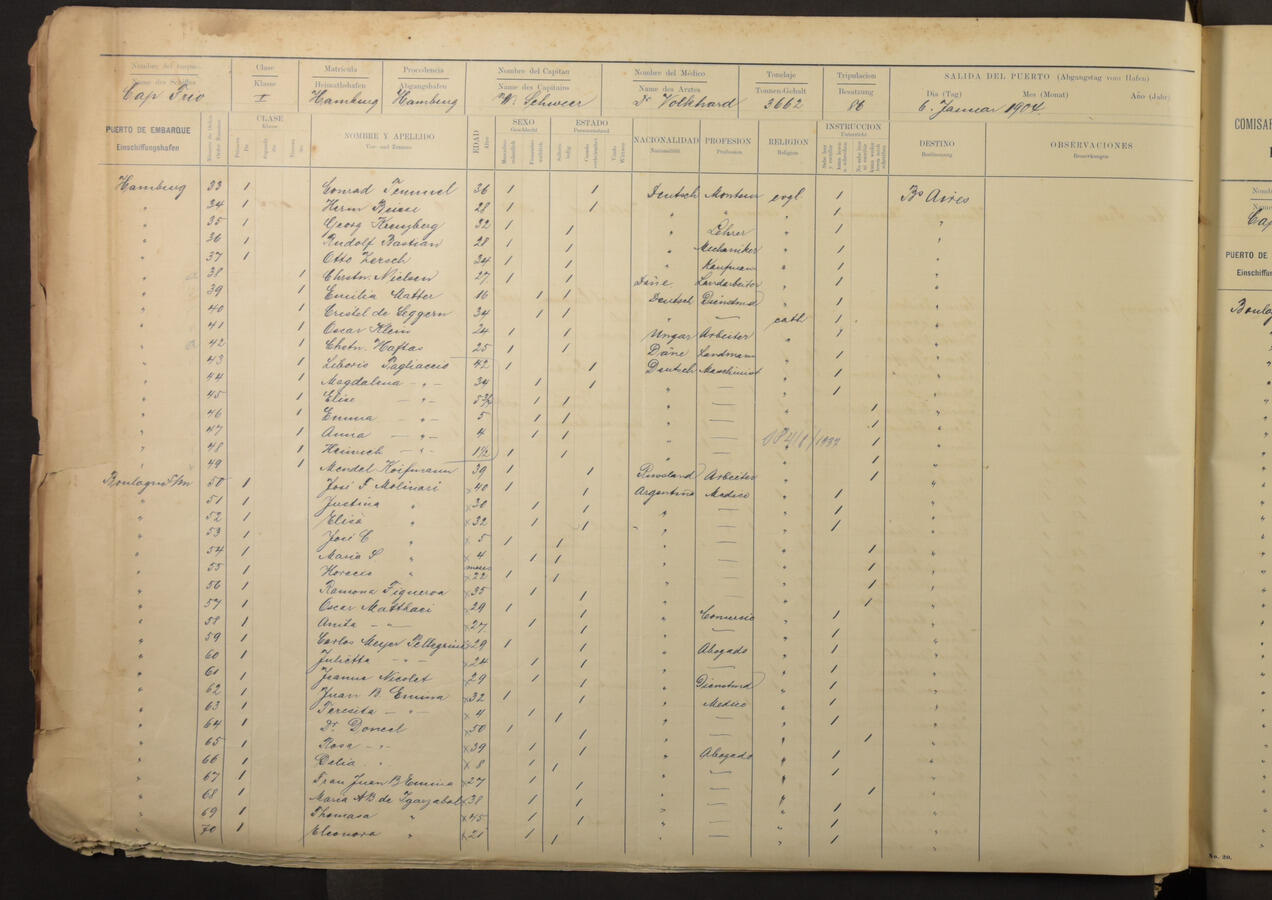 Nombre del buque Clase Matrícula Procedencia Nombre del Capitan Nombre del Médico Tonelaje Tripulacion SALIDA DEL PUERTO (Abgangstag vom Hafen)
Name des Schiffes Klasse Heimathshafen Abgangshafen Name des Capitains Name des Arztes Tonnen-Gehalt Besatzung Dia (Tag) Mes (Monat) Año (Jahr)
Cap Frio I Hamburg Hamburg W. Schweer Dr Volkhard 3662 86 6. Januar 1904
PUERTO DE EMBARQUE CLASE NOMBRE Y APELLIDO EDAD SEXO ESTADO NACIONALIDAD PROFESION RELIGION INSTRUCCION DESTINO OBSERVACIONES
Einschiffungshafen Klasse Vor- und Zuname Alter Geschlecht Personenstand Nationalität Profession Religion Unterricht Bestimmung Bemerkungen
Hamburg 33 1 Conrad 36 1 1 Deutsch Monteur evgl 1 Bs Aires
" 34 1 Herm 28 1 1 " " " 1 "
" 35 1 Georg Kreuzberg 32 1 1 " Lehrer " 1 "
" 36 1 Rudolf Bastian 28 1 1 " Mechaniker " 1 "
" 37 1 Otto Zersch 34 1 1 " Kaufmann " 1 "
" 38 1 Chrstn. Nielsen 27 1 1 Däne Landarbeiter " 1 "
" 39 1 Emilia Matter 16 1 1 Deutsch Dienstmd " 1 "
" 40 1 Cristel de Seggern 34 1 1 " — cath 1 "
" 41 1 Oscar Klein 24 1 1 Ungar Arbeiter " 1 "
" 42 1 Chstn. Haftas 25 1 1 Däne Landmann " 1 "
" 43 1 Liborio Pagliaccio 42 1 1 Deutsch Maschinist " 1 "
" 44 1 Magdalena — " — 34 1 1 " — " 1 "
" 45 1 Elise — " — 1 1 " — " 1 "
" 46 1 Emma — " — 5 1 1 " — " 1 "
" 47 1 Anna — " — 4 1 1 " — 1 "
" 48 1 Heinrich — " — 1½ 1 1 " — " 1 "
" 49 1 Mendel Koifmann 39 1 1 Russland Arbeiter " 1 "
Boulogne s/m 50 1 José F Molinari x40 1 1 Argentina Medico " 1 "
" 51 1 Justina " x30 1 1 " — " 1 "
" 52 1 Elisa " x32 1 1 " — " 1 "
" 53 1 José C " x5 1 1 " — " 1 "
" 54 1 Maria S " x4 1 1 " — " 1 "
" 55 1 Horacio " meses x22 1 1 " — " 1 "
" 56 1 Ramona Figueroa x35 1 1 " — " 1 "
" 57 1 Oscar Matthaei x29 1 1 " Comercio " 1 "
" 58 1 Anita — " — x27 1 1 " — " 1 "
" 59 1 Carlos Meyer Pellegrini x29 1 1 " Abogado " 1 "
" 60 1 Julietta — " — x24 1 1 " — " 1 "
" 61 1 Jeanne Nicolet x29 1 1 " Dienstmd " 1 "
" 62 1 Juan B. Emina x32 1 1 " Medico " 1 "
" 63 1 Teresita — " — x4 1 1 " — " 1 "
" 64 1 Dr Doncel x50 1 1 " Abogado " 1 "
" 65 1 Rosa — " — x39 1 1 " — " 1 "
" 66 1 Delia " x8 1 1 " — " 1 "
" 67 1 Frau Juan B Emina x27 1 1 " — " 1 "
" 68 1 Maria A B de Ygarzabal x38 1 1 " — " 1 "
" 69 1 Thomasa " x45 1 1 " — " 1 "
" 70 1 Eleonora " x21 1 1 " — " 1 "
COMISAR
Nombre
Name
Cap
PUERTO DE
Einschiffung
Boulog
No. 20.